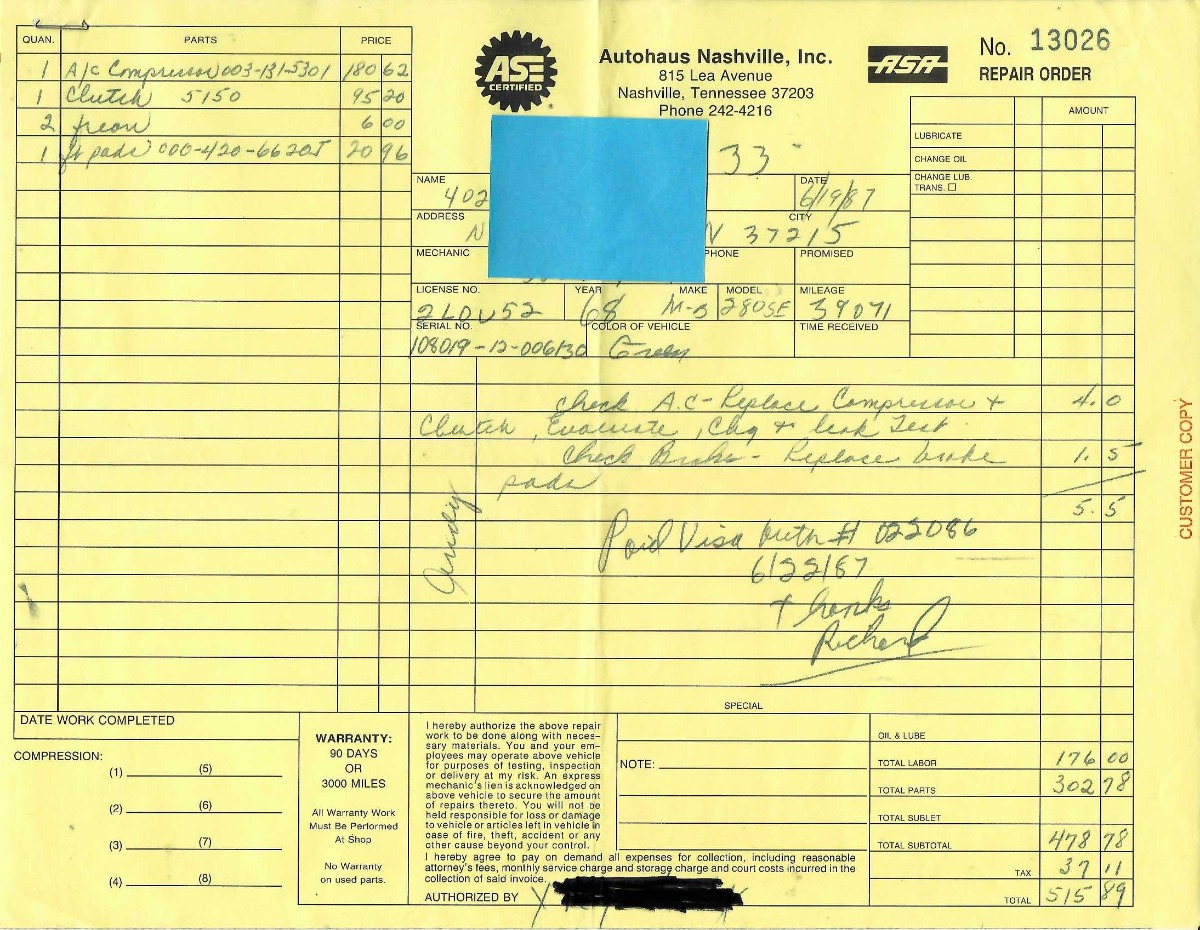 QUAN. PARTS PRICE
1 A/C Compressor 003-131-5301 180 62
1 Clutch 5150 95 20
2 freon 6 00
1 ft pads 000-420-6620J 20 96
ASE CERTIFIED
Autohaus Nashville, Inc.
815 Lea Avenue
Nashville, Tennessee 37203
Phone 242-4216
ASA
No. 13026
REPAIR ORDER
AMOUNT
LUBRICATE
CHANGE OIL
CHANGE LUB.
TRANS. ☐
33
NAME DATE
402 6/19/87
ADDRESS CITY
N 37215
MECHANIC PHONE PROMISED
LICENSE NO. YEAR MAKE MODEL MILEAGE
2LOU52 68 M-B 280SE 39071
SERIAL NO. COLOR OF VEHICLE TIME RECEIVED
108019-12-006130 Green
Check A.C - Replace Compressor + 4.0
Clutch, Evacuate, Chg + leak Test.
Check Brake - Replace brake 1.5
pads
5.5
Andy
Paid Visa Auth # 022086
6/22/87
Thanks
Richard
CUSTOMER COPY
SPECIAL
DATE WORK COMPLETED
COMPRESSION:
(1) (5)
(2) (6)
(3) (7)
(4) (8)
WARRANTY:
90 DAYS
OR
3000 MILES
All Warranty Work
Must Be Performed
At Shop
No Warranty
on used parts.
I hereby authorize the above repair
work to be done along with neces-
sary materials. You and your em-
ployees may operate above vehicle
for purposes of testing, inspection
or delivery at my risk. An express
mechanic's lien is acknowledged on
above vehicle to secure the amount
of repairs thereto. You will not be
held responsible for loss or damage
to vehicle or articles left in vehicle in
case of fire, theft, accident or any
other cause beyond your control.
I hereby agree to pay on demand all expenses for collection, including reasonable
attorney's fees, monthly service charge and storage charge and court costs incurred in the
collection of said invoice.
AUTHORIZED BY X
NOTE:
OIL & LUBE
TOTAL LABOR 176 00
TOTAL PARTS 302 78
TOTAL SUBLET
TOTAL SUBTOTAL 478 78
TAX 37 11
TOTAL 515 89